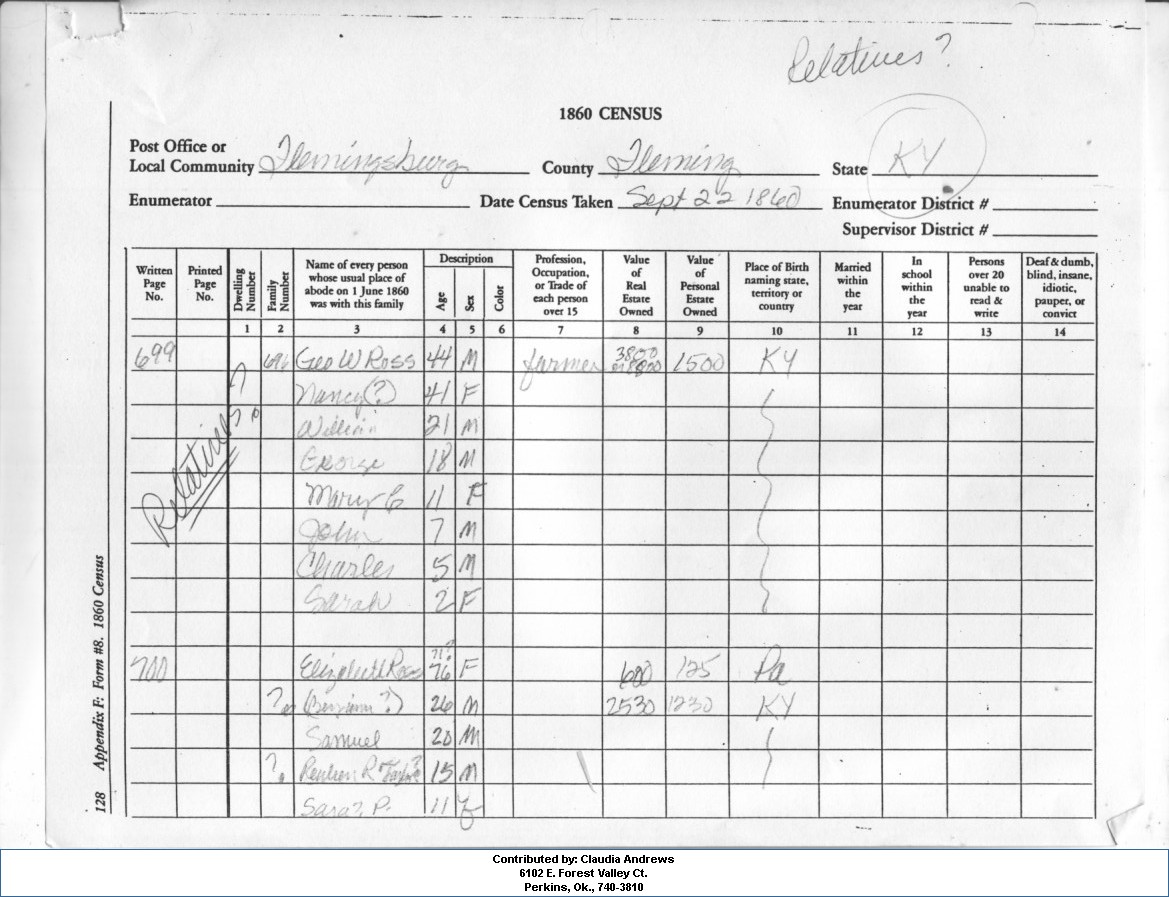 Relatives?
1860 CENSUS
Post Office or
Local Community Flemingsburg County Fleming State KY
Enumerator Date Census Taken Sept 22 1860 Enumerator District #
Supervisor District #
Written Page No.
Printed Page No.
Dwelling Number
Family Number
Name of every person whose usual place of abode on 1 June 1860 was with this family
Description
Age
Sex
Color
Profession, Occupation, or Trade of each person over 15
Value of Real Estate Owned
Value of Personal Estate Owned
Place of Birth naming state, territory or country
Married within the year
In school within the year
Persons over 20 unable to read & write
Deaf & dumb, blind, insane, idiotic, pauper, or convict
1 2 3 4 5 6 7 8 9 10 11 12 13 14
699 Geo W Ross 44 M farmer 1500 KY
Nancy (?) 41 F
William 21 M
George 18 M
Mary E 11 F
John 7 M
Charles 5 M
Sarah 2 F
Relatives?
700 Elizabeth Ross 76 F 600 125 Pa
? 26 M 2530 1230 KY
Samuel 20 M
? Reuben R Taylor? 15 M
Sara? P. 11 F
128 Appendix F: Form #8. 1860 Census
Contributed by: Claudia Andrews
6102 E. Forest Valley Ct.
Perkins, Ok., 740-3810